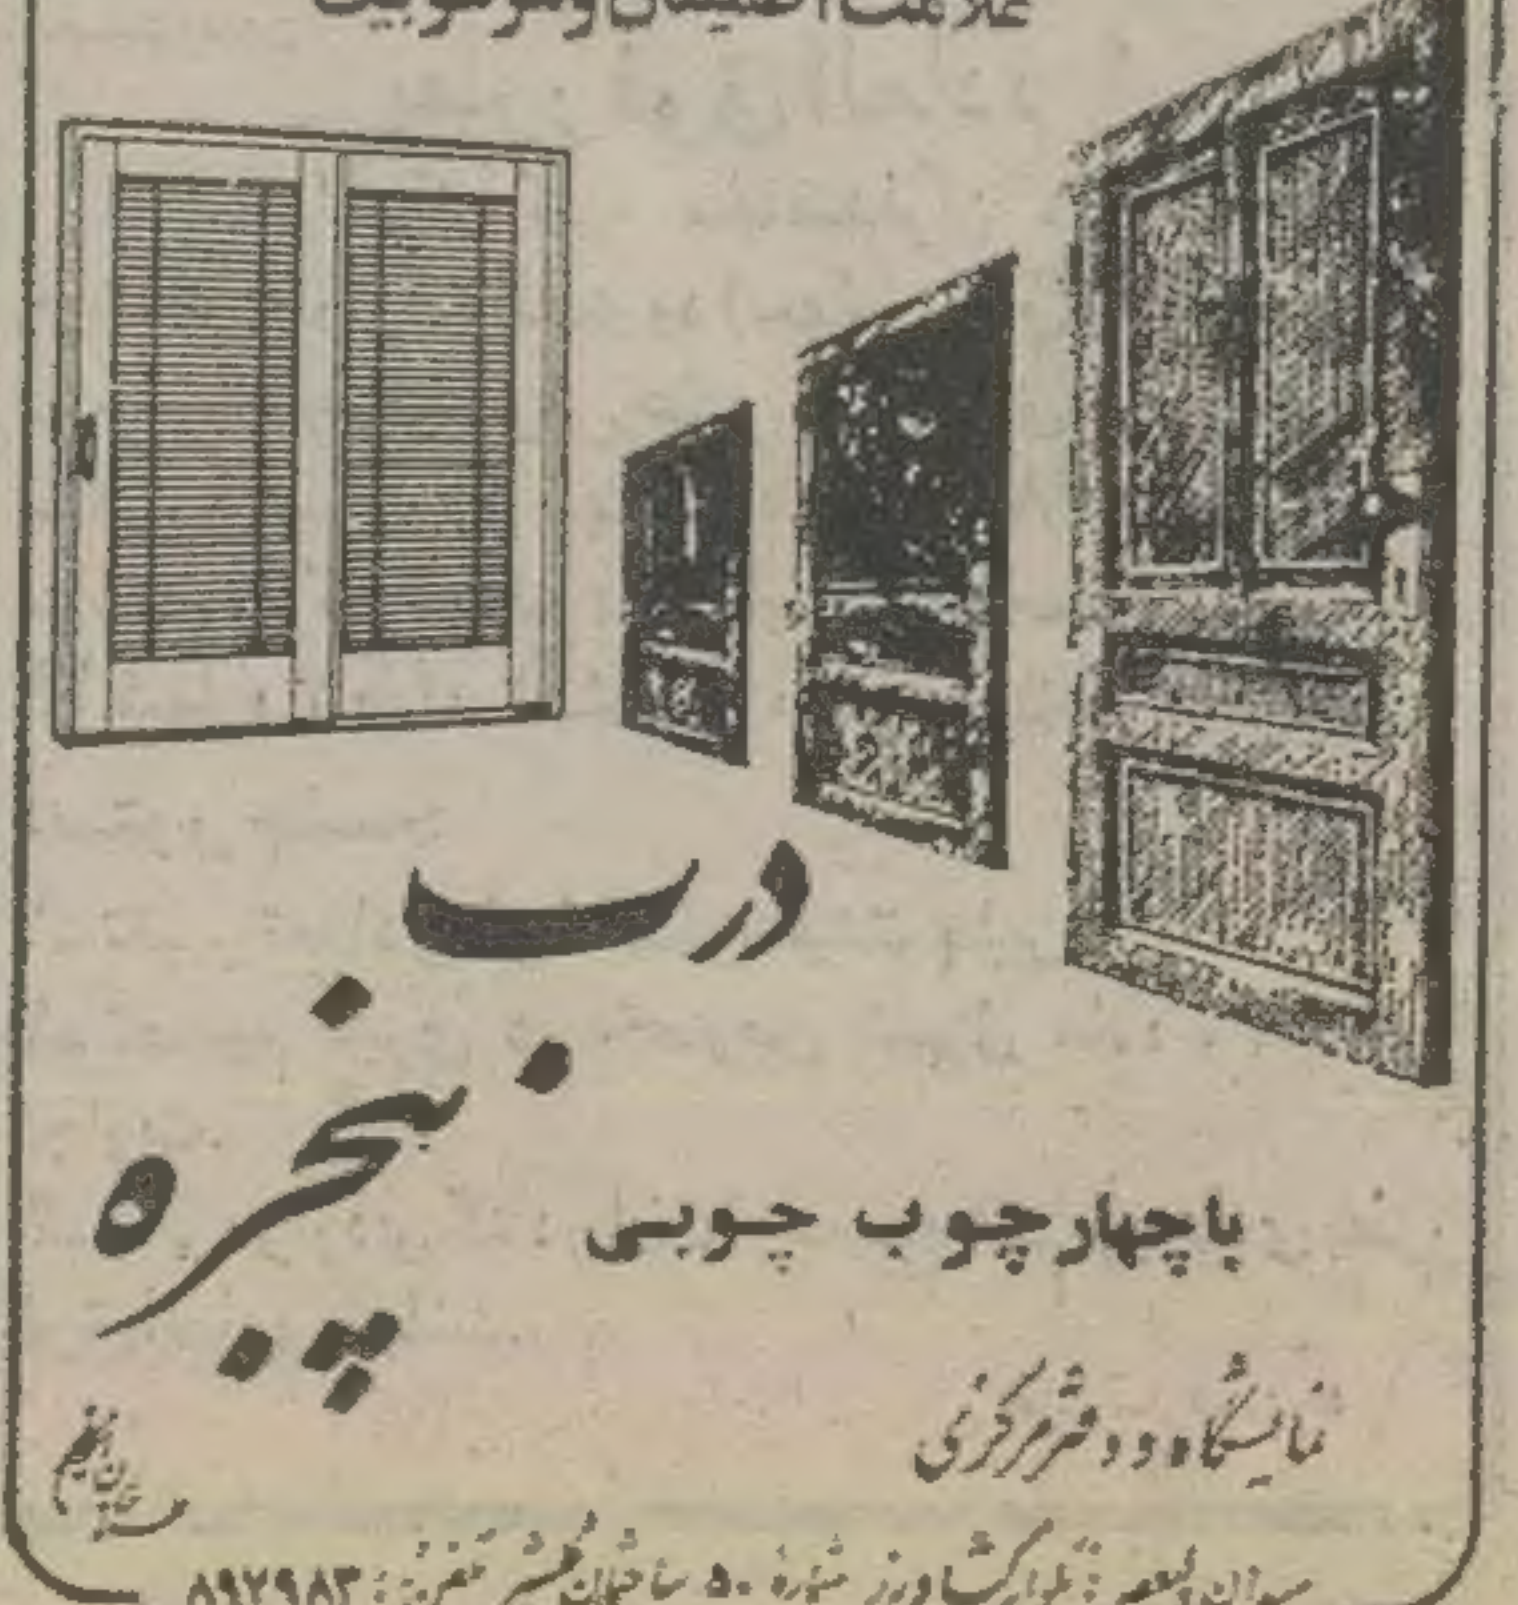 علامت اطمینان و مرغوبیت
درب
پنجره
با چهارچوب چوبی
نمایشگاه و دفتر مرکزی
میدان ولیعصر: بلوار کشاورز شماره ۵۰ ساختمان تلفن: ۸۹۷۹۸۳